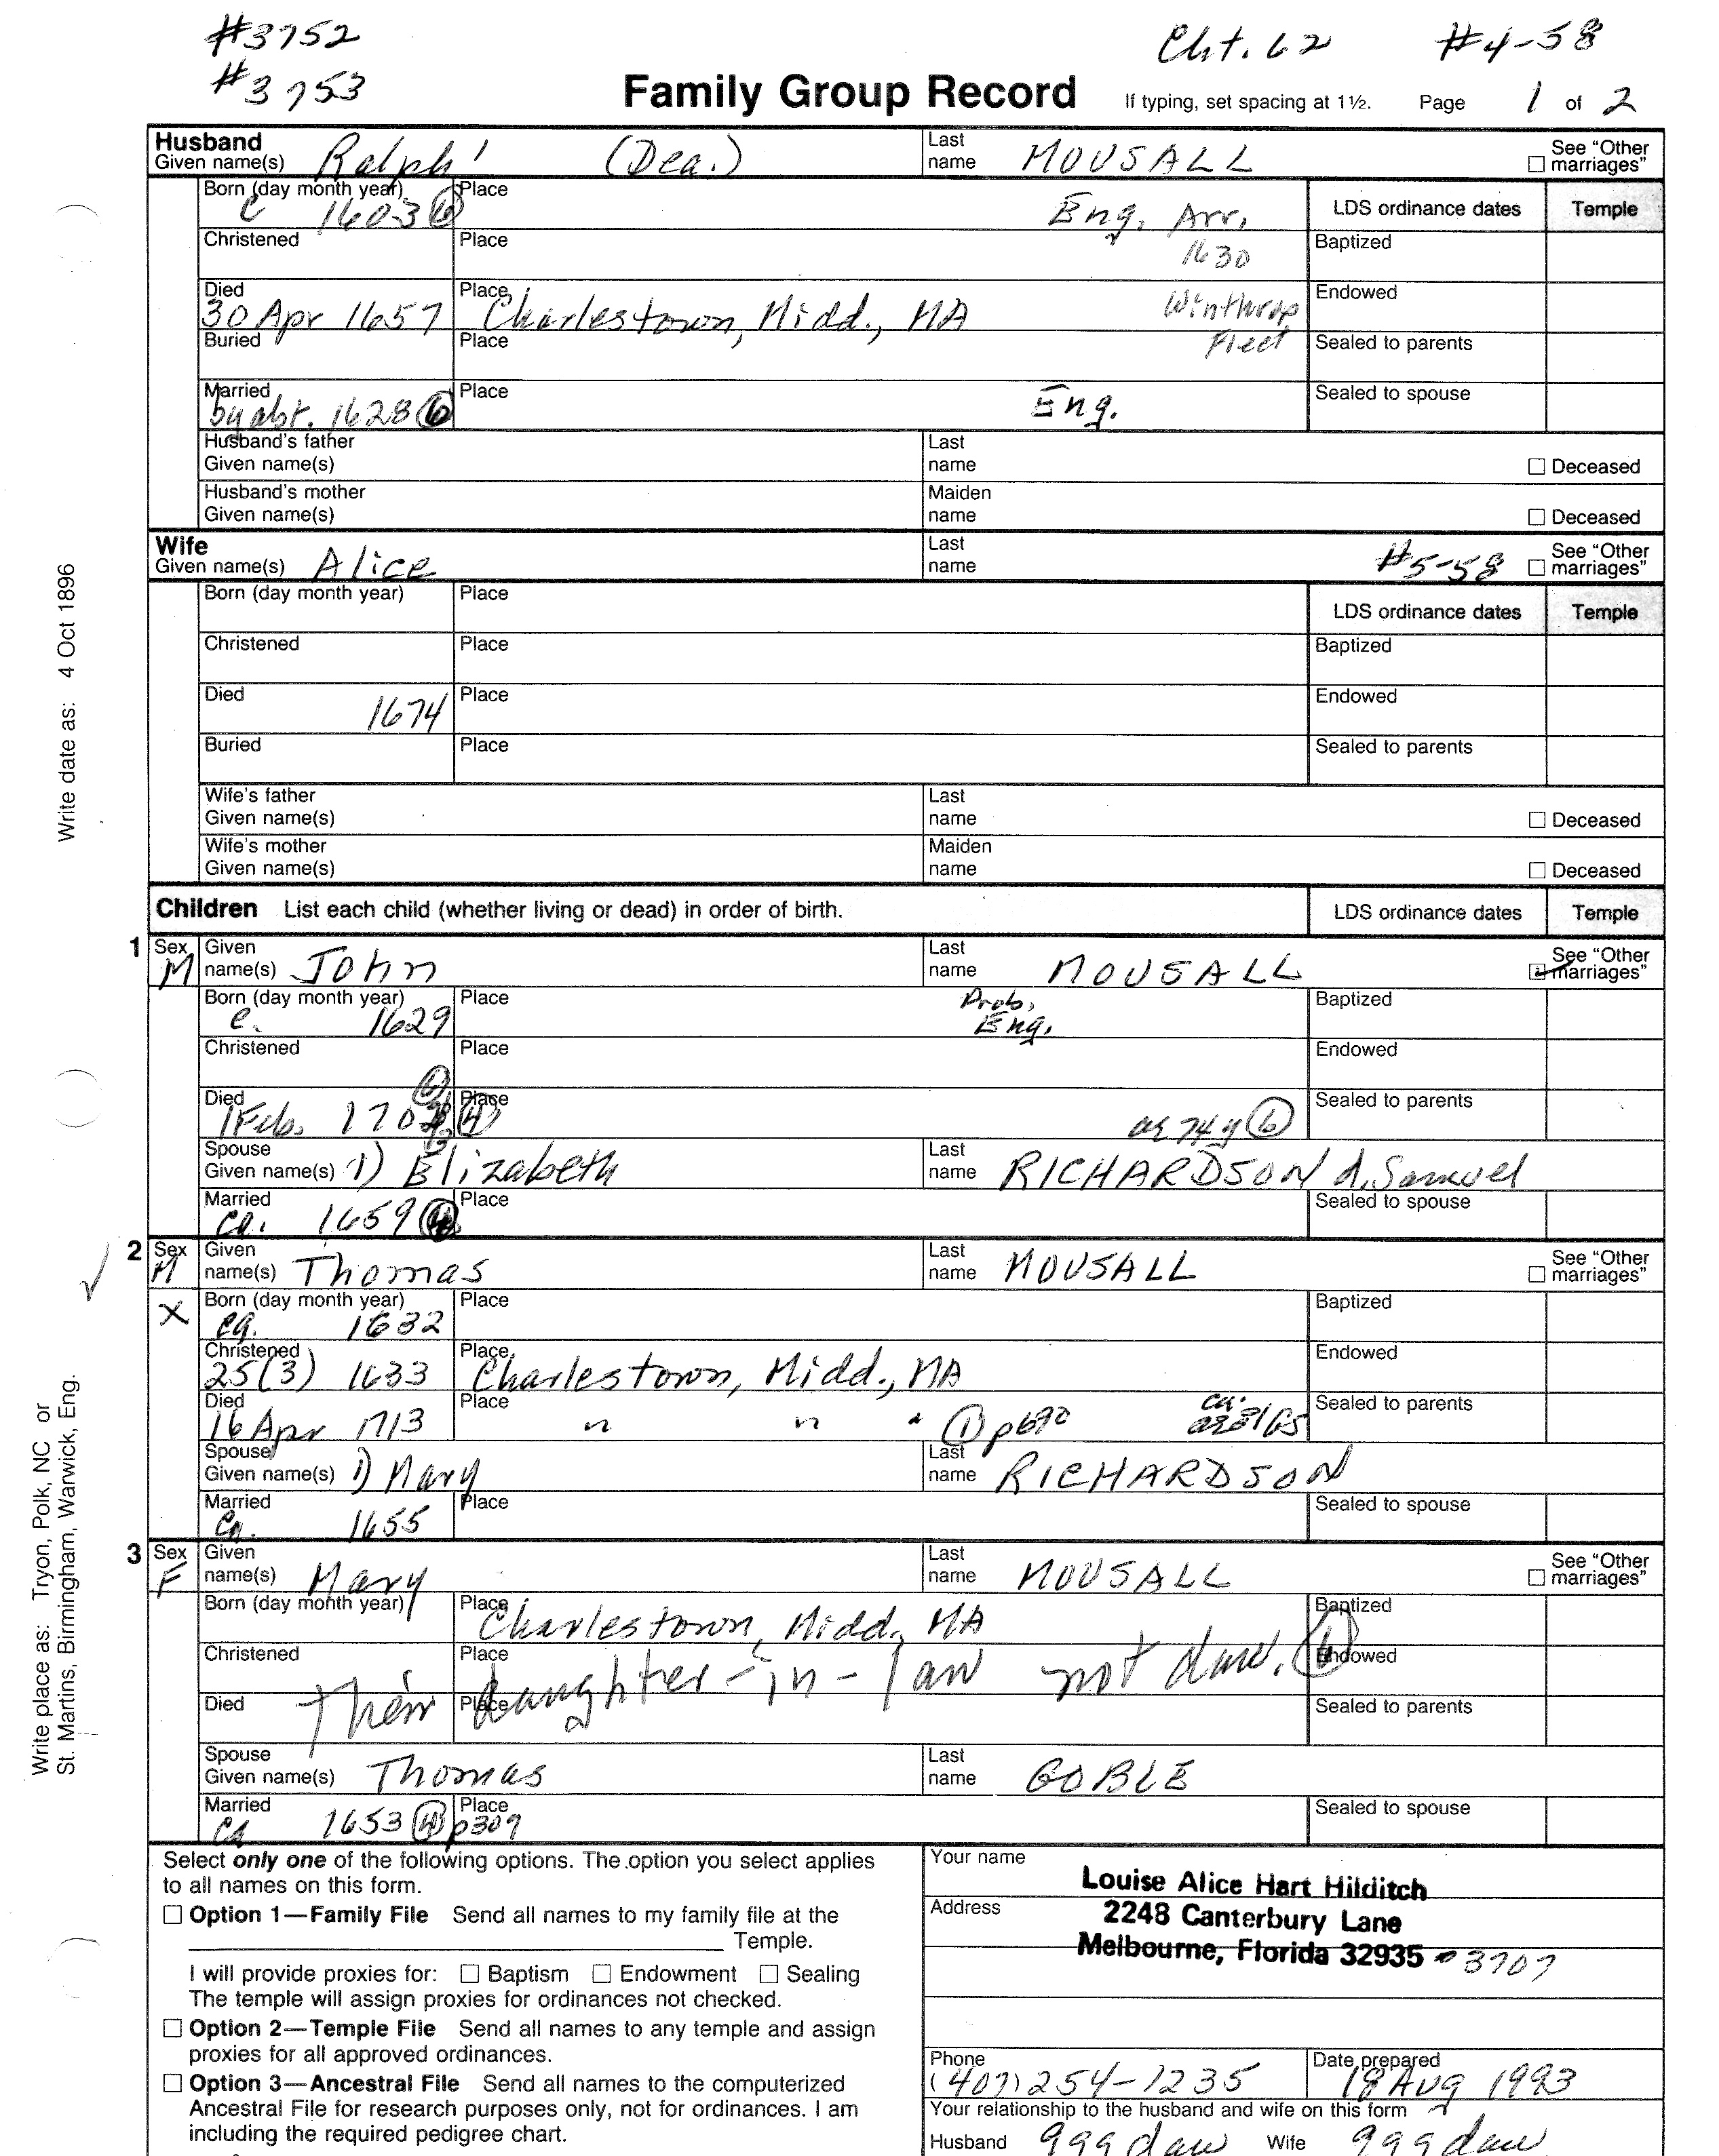 #3752
#3753
Cht. 62 #4-58
Family Group Record If typing, set spacing at 1½. Page 1 of 2
Husband
Given name(s) Ralph¹ (Dea.) Last name MOUSALL See "Other marriages"
Born (day month year) c 1603 (6) Place Eng. Arr. 1630 Winthrop Fleet LDS ordinance dates Temple
Christened Place Baptized
Died 30 Apr 1657 Place Charlestown, Midd., MA Endowed
Buried Place Sealed to parents
Married by abt. 1628 (6) Place Eng. Sealed to spouse
Husband's father
Given name(s) Last name Deceased
Husband's mother
Given name(s) Maiden name Deceased
Wife
Given name(s) Alice Last name #5-58 See "Other marriages"
Born (day month year) Place LDS ordinance dates Temple
Christened Place Baptized
Died 1674 Place Endowed
Buried Place Sealed to parents
Wife's father
Given name(s) Last name Deceased
Wife's mother
Given name(s) Maiden name Deceased
Children List each child (whether living or dead) in order of birth. LDS ordinance dates Temple
1 Sex M Given name(s) John Last name MOUSALL See "Other marriages"
Born (day month year) c. 1629 Place Prob. Eng. Baptized
Christened Place Endowed
Died 1 Feb. Place (4) 74 y (6) Sealed to parents
Spouse
Given name(s) 1) Elizabeth Last name RICHARDSON d. Samuel
Married ca. 1659 Place Sealed to spouse
2 Sex M Given name(s) Thomas Last name MOUSALL See "Other marriages"
X Born (day month year) ca. 1632 Place Baptized
Christened 25(3) 1633 Place Charlestown, Midd., MA Endowed
Died 16 Apr 1713 Place " " " (1) p690 ca. Sealed to parents
Spouse
Given name(s) 1) Mary Last name RICHARDSON
Married Ca. 1655 Place Sealed to spouse
3 Sex F Given name(s) Mary Last name MOUSALL See "Other marriages"
Born (day month year) Place Charlestown, Midd., MA Baptized
Christened Place Endowed
Their daughter-in-law not dau. (6)
Died Place Sealed to parents
Spouse
Given name(s) Thomas Last name GOBLE
Married ca 1653 (4) p309 Place Sealed to spouse
Write date as: 4 Oct 1896
Write place as: Tryon, Polk, NC or
St. Martins, Birmingham, Warwick, Eng.
Select only one of the following options. The option you select applies
to all names on this form.
Option 1—Family File Send all names to my family file at the
Temple.
I will provide proxies for: Baptism Endowment Sealing
The temple will assign proxies for ordinances not checked.
Option 2—Temple File Send all names to any temple and assign
proxies for all approved ordinances.
Option 3—Ancestral File Send all names to the computerized
Ancestral File for research purposes only, not for ordinances. I am
including the required pedigree chart.
Your name Louise Alice Hart Hilditch
Address 2248 Canterbury Lane
Melbourne, Florida 32935-3707
Phone (407) 254-1235 Date prepared 18 Aug 1993
Your relationship to the husband and wife on this form
Husband ggg dau Wife ggg dau